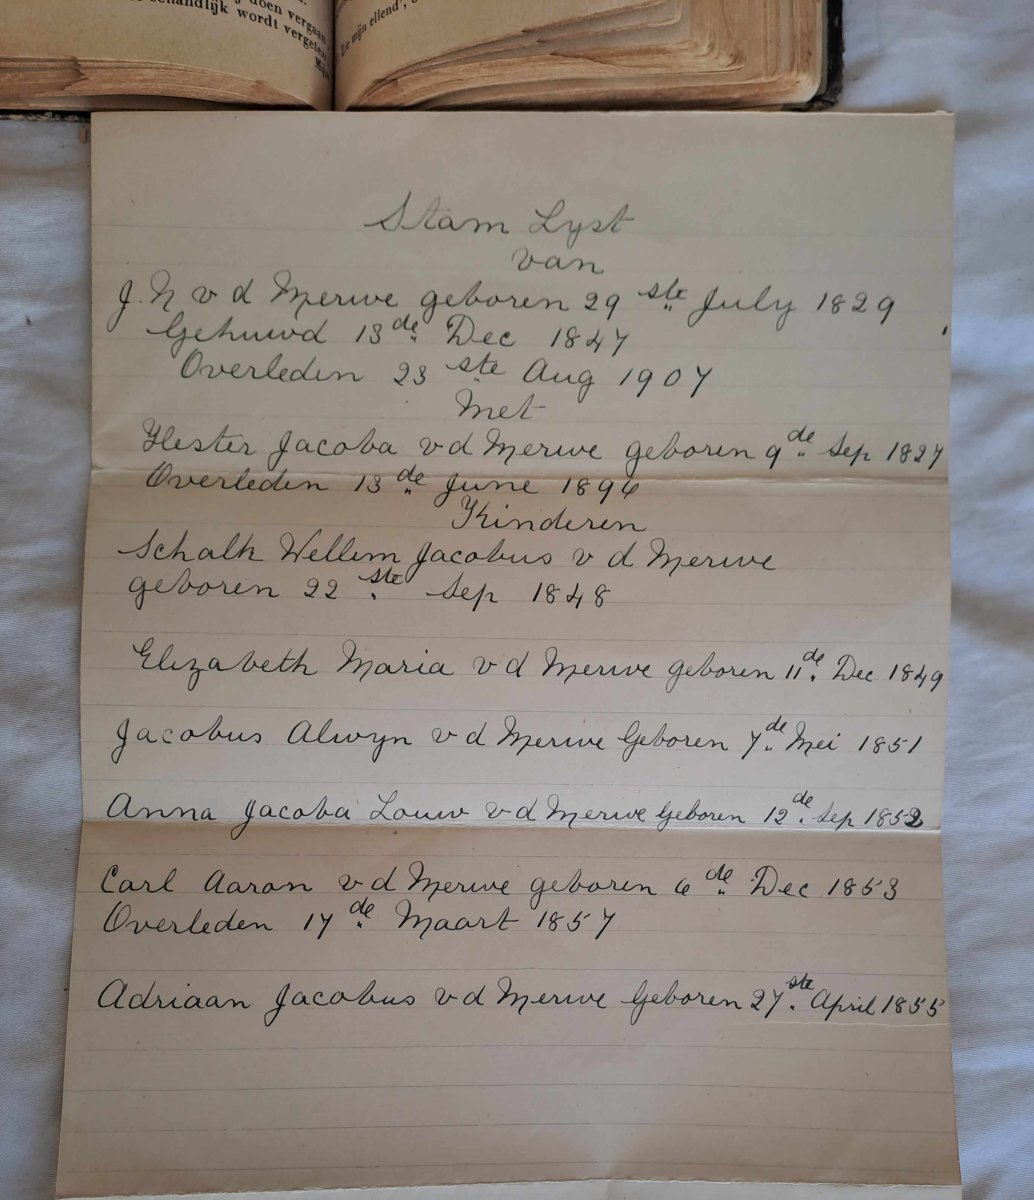 doen vergaan
handlijk wordt vergeten
Zie mijn ellend',
Stam Lyst
van
J. N v d Merwe geboren 29 ste July 1829
Gehuwd 13 de Dec 1847
Overleden 23 ste Aug 1907
Met
Hester Jacoba v d Merwe geboren 9 de Sep 1827
Overleden 13 de June 1896
Kinderen
Schalk Wellem Jacobus v d Merwe
geboren 22 ste Sep 1848
Elizabeth Maria v d Merwe geboren 11 de Dec 1849
Jacobus Alwyn v d Merwe Geboren 7 de Mei 1851
Anna Jacoba Louw v d Merwe Geboren 12 de Sep 1852
Carl Aaron v d Merwe geboren 6 de Dec 1853
Overleden 17 de Maart 1857
Adriaan Jacobus v d Merwe Geboren 27 ste April 1855